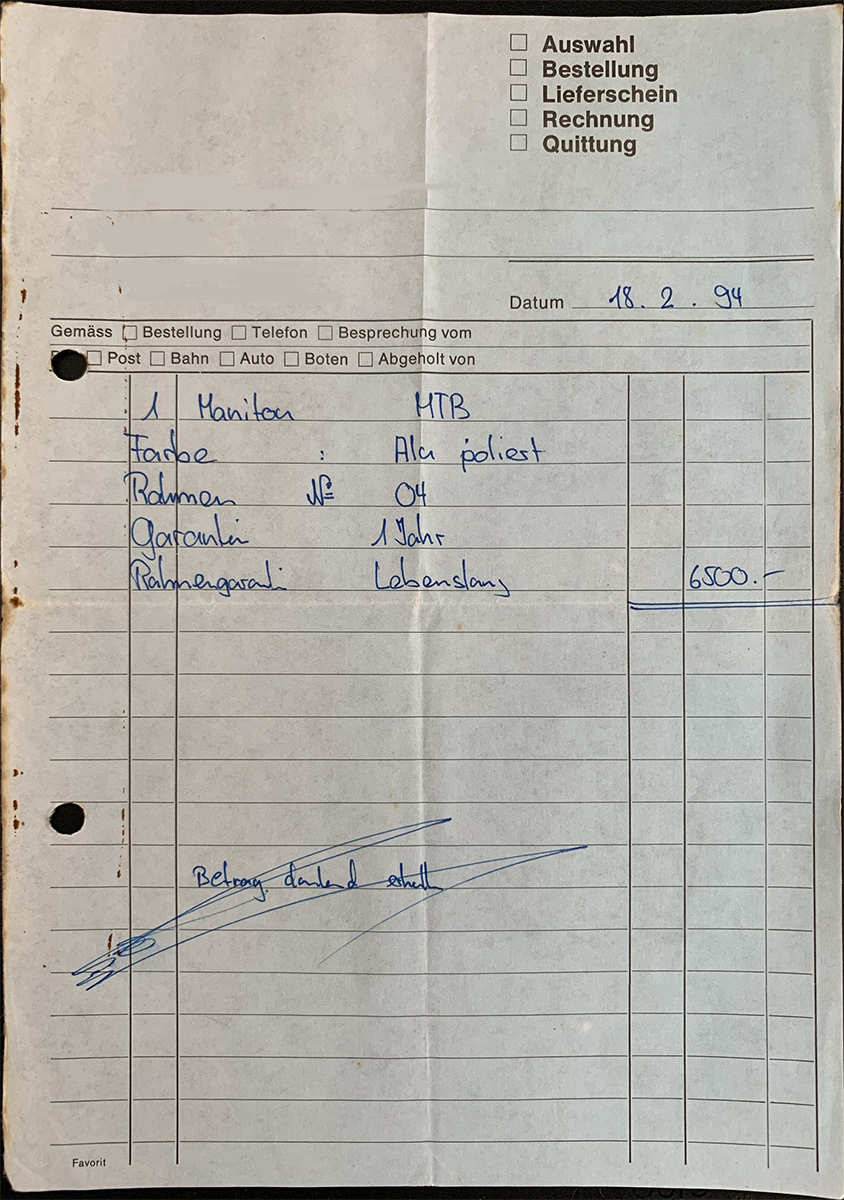 Auswahl
Bestellung
Lieferschein
Rechnung
Quittung
Datum 18. 2. 94
Gemäss Bestellung Telefon Besprechung vom
Post Bahn Auto Boten Abgeholt von
1 Manitou MTB
Farbe : Alu poliert
Rahmen № 04
Garantie 1 Jahr
Rahmengaranti Lebenslang 6500.-
Betrag dankend erhalten
Favorit